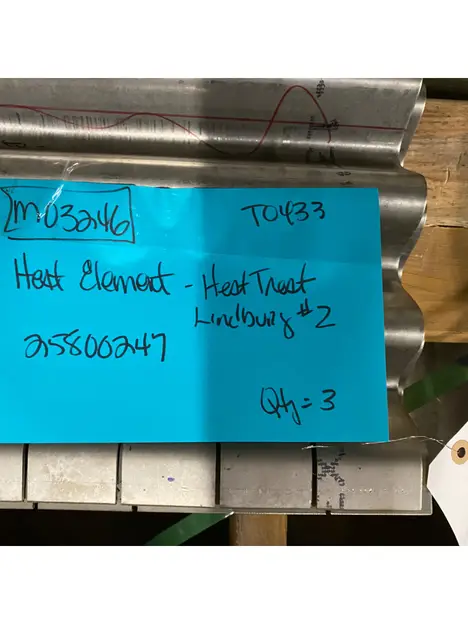 M03246
T0433
Heat Element - Heat Treat
Lindburg #2
25800247
Qty = 3